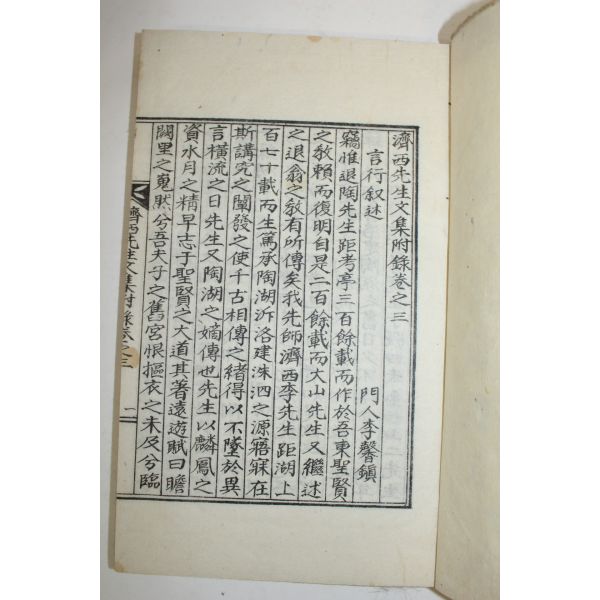 濟西先生文集附錄卷之三
言行叙述
門人李馨鎭
竊惟退陶先生距考亭三百餘載而作於吾東聖賢
之教賴而復明自是二百餘載而大山先生又繼述
之退翁之教有所傳矣我先師濟西李先生距湖上
百七十載而生篤承陶湖泝洛建洙泗之源寤寐在
斯講究之闡發之使千古相傳之緖得以不墜於異
言橫流之日先生又陶湖之嫡傳也先生以麟鳳之
資水月之精早志于聖賢之大道其著遠遊賦曰瞻
闕里之嵬默兮吾夫子之舊宮恨摳衣之未及兮臨
濟西先生文集附錄卷之三
一